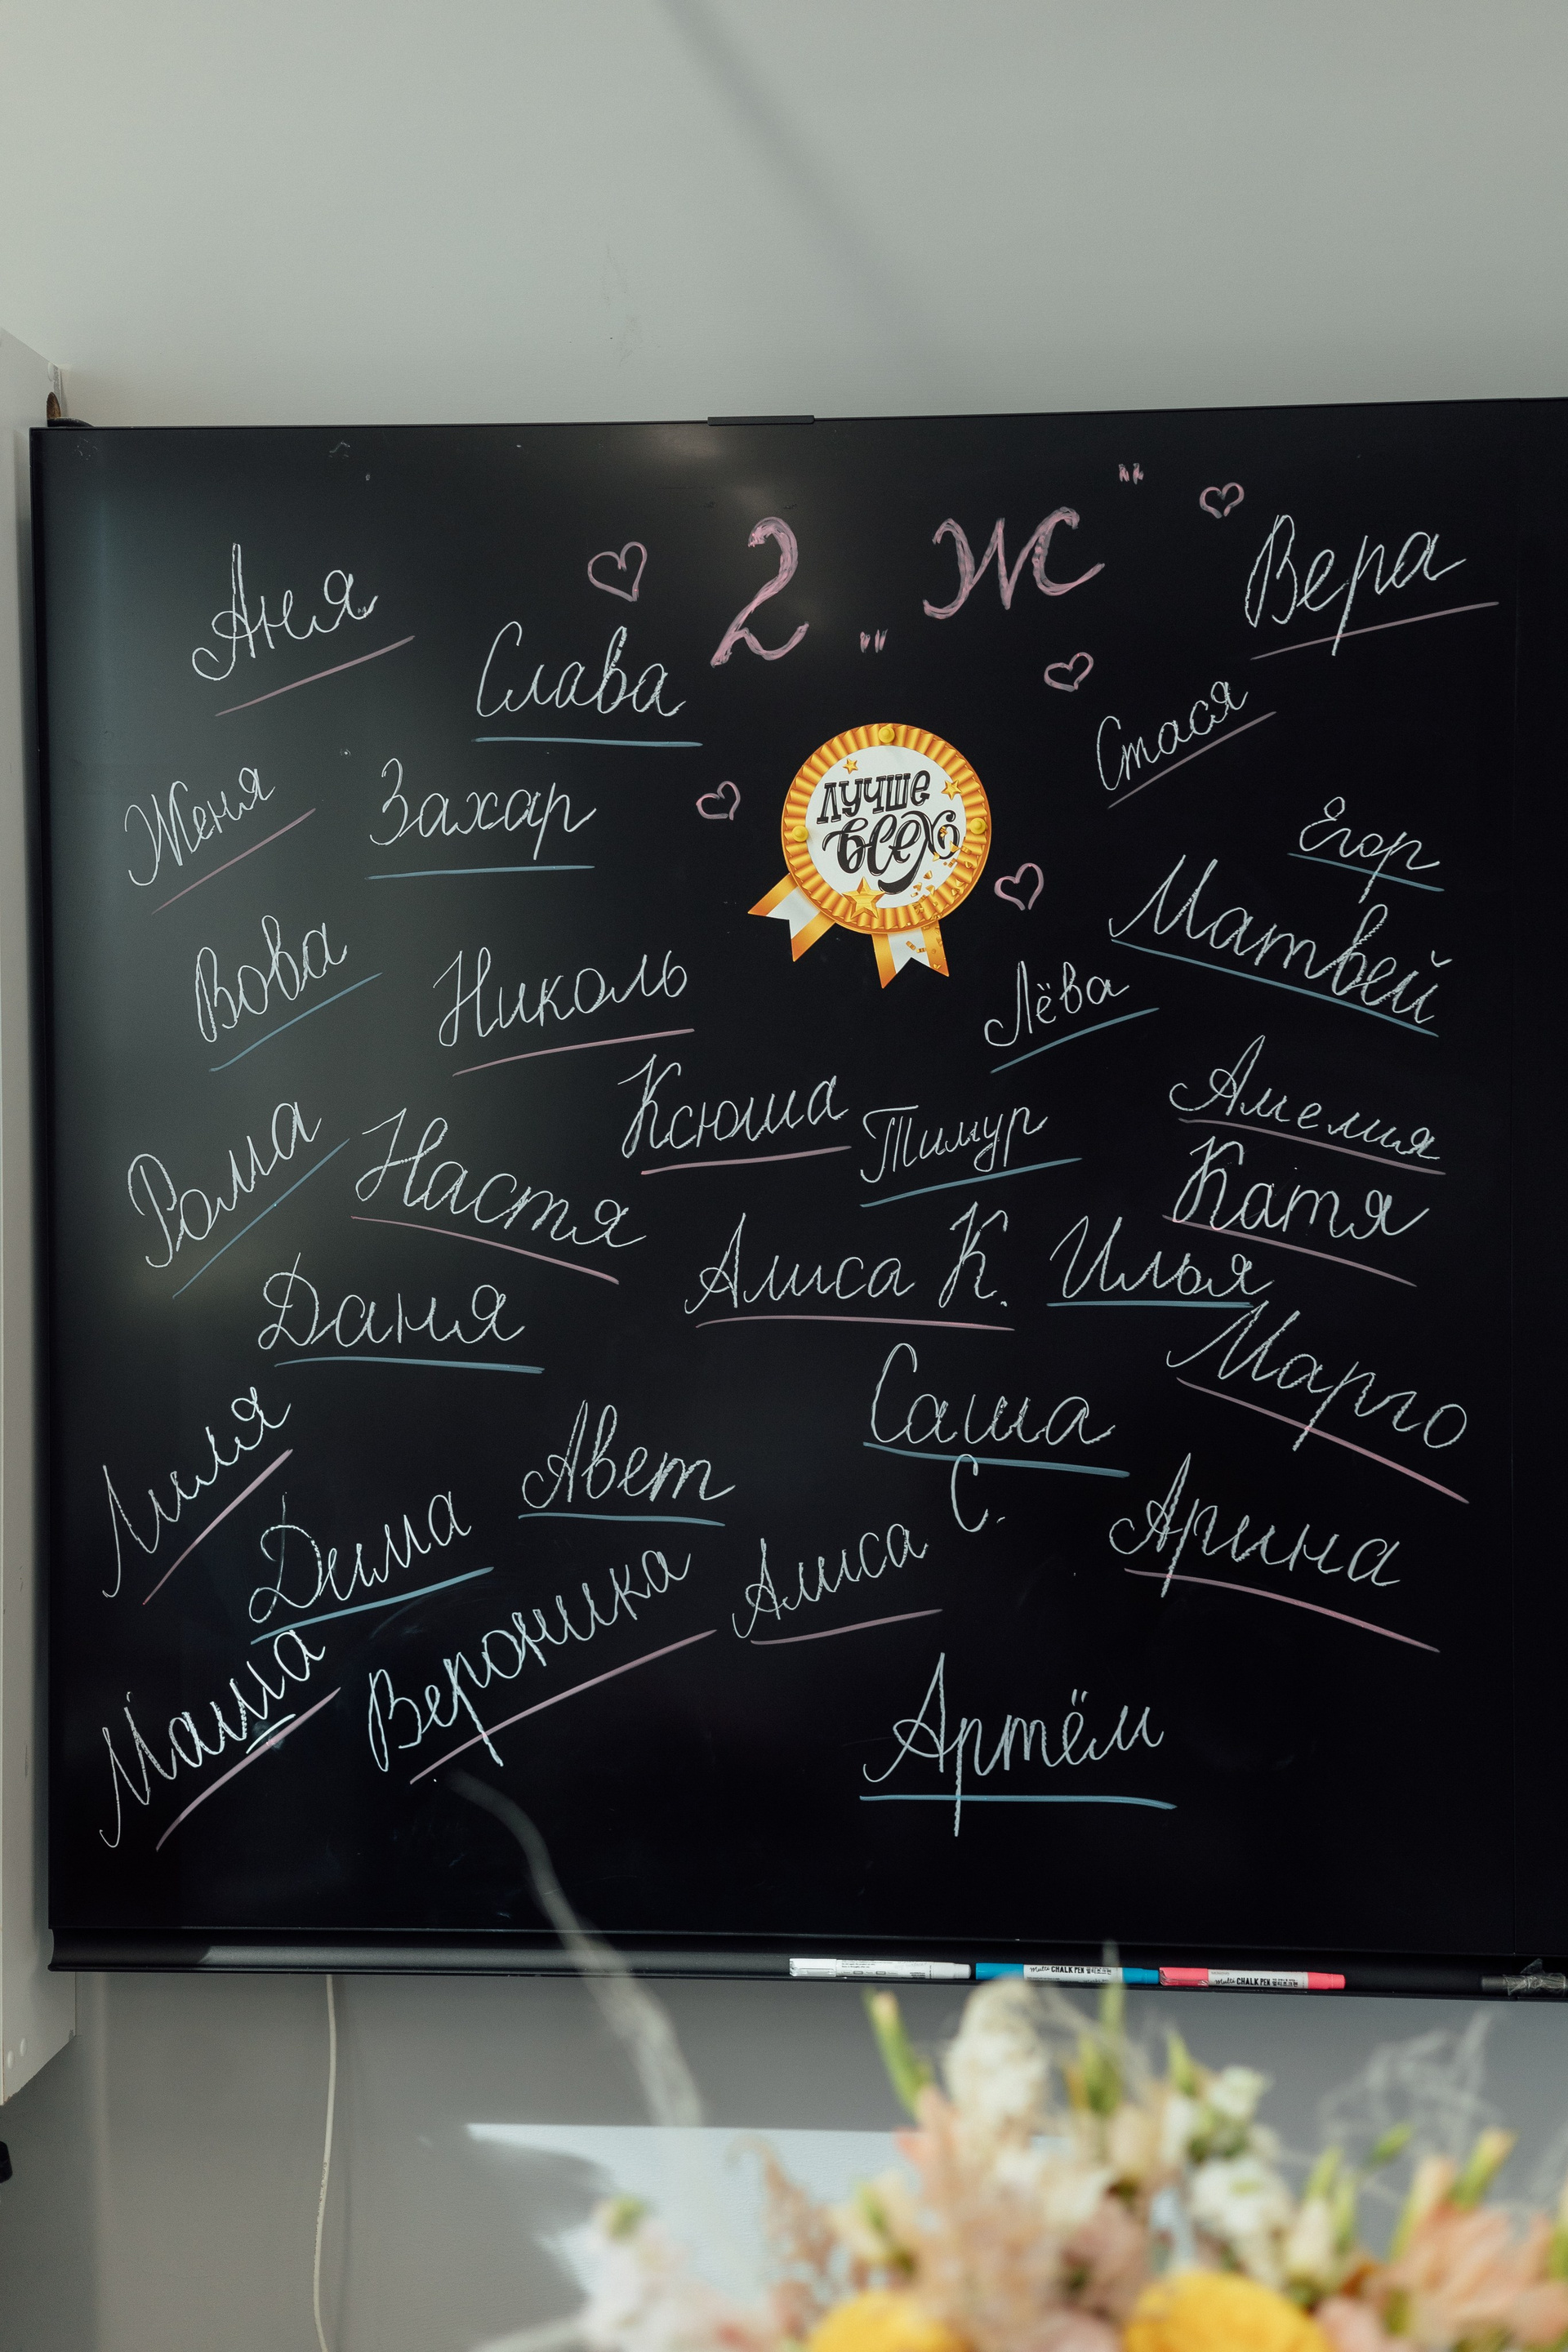 2 „Ж"
Аня
Слава
Вера
Стася
Женя
Захар
лучше
всех
Егор
Матвей
Вова
Николь
Лёва
Ксюша
Тимур
Амелия
Рома
Настя
Катя
Даня
Алиса К.
Илья
Марго
Саша
Лиля
Авет
Дима
Алиса С.
Арина
Маша
Вероника
Артём
Multi CHALK PEN
Multi CHALK PEN